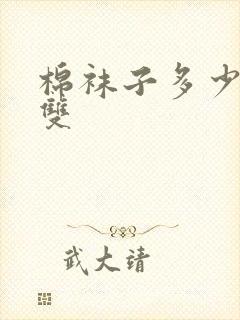 棉袜子多少
雙
武大靖